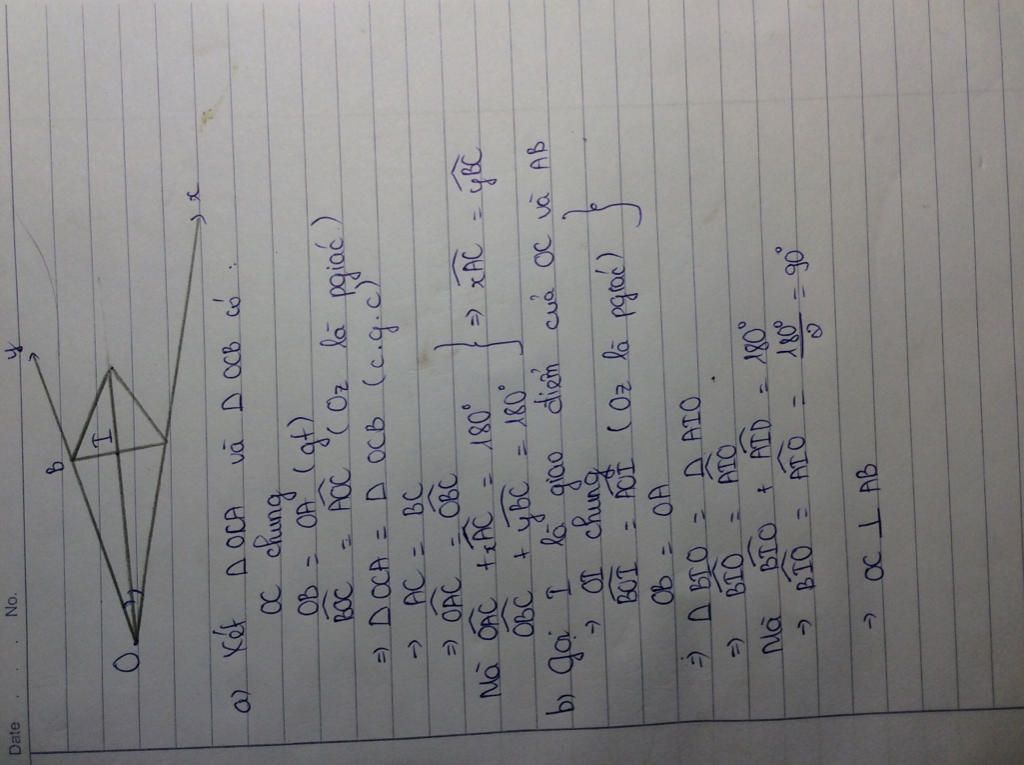 Date . . . No.
y
B
I
O
x
a) Xét Δ OCA và Δ OCB có :
OC chung
OB = OA (gt)
BOC = AOC (Oz là pgiác)
⇒ Δ OCA = Δ OCB (c.g.c)
→ AC = BC
⇒ OAC = OBC
Mà OAC + xAC = 180° } ⇒ xAC = yBC
OBC + yBC = 180°
b) Gọi I là giao điểm của OC và AB
→ OI chung
BOI = AOI (Oz là pgiác) }
OB = OA
⇒ Δ BIO = Δ AIO
⇒ BIO = AIO
Mà BIO + AIO = 180°
→ BIO = AIO = 180°/2 = 90°
→ OC ⊥ AB